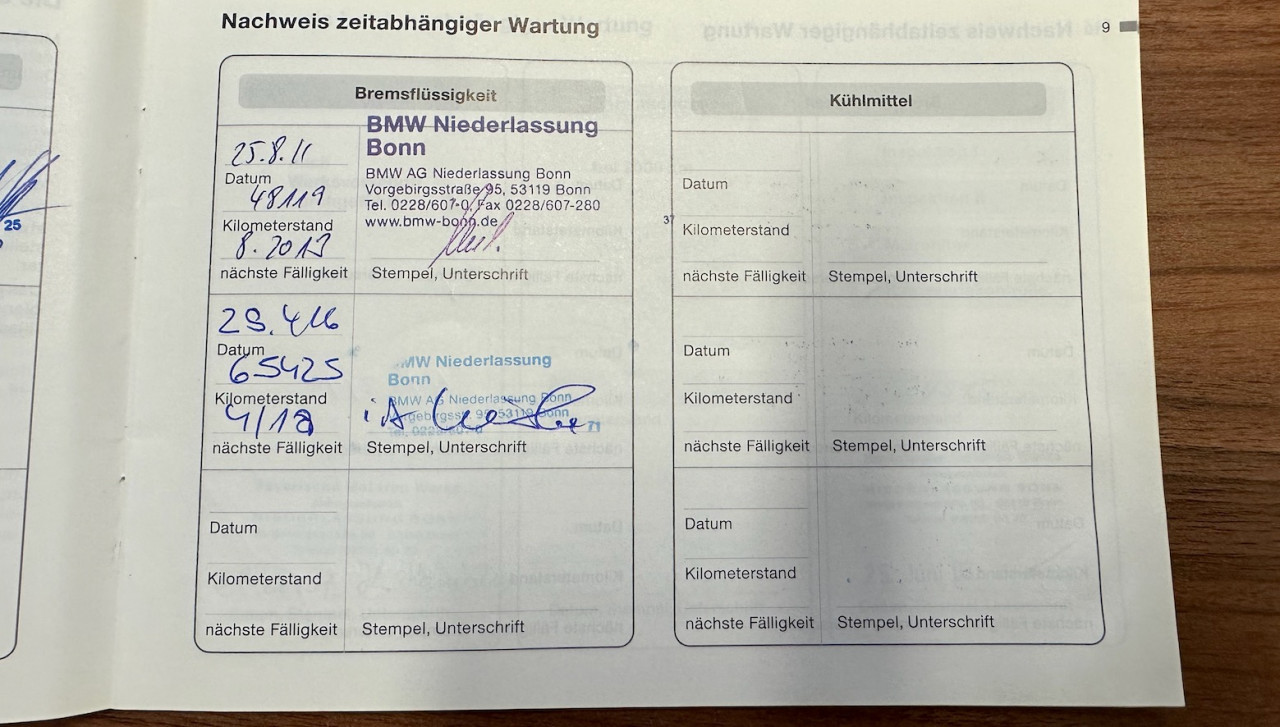 Nachweis zeitabhängiger Wartung
9
Bremsflüssigkeit
25.8.11
Datum
48119
Kilometerstand
8.2013
nächste Fälligkeit
BMW Niederlassung
Bonn
BMW AG Niederlassung Bonn
Vorgebirgsstraße 95, 53119 Bonn
Tel. 0228/607-0, Fax 0228/607-280
www.bmw-bonn.de
Stempel, Unterschrift
Datum
65425
Kilometerstand
4/18
nächste Fälligkeit
MW Niederlassung
Bonn
BMW AG Niederlassung Bonn
53119 Bonn
Stempel, Unterschrift
Datum
Kilometerstand
nächste Fälligkeit
Stempel, Unterschrift
Kühlmittel
Datum
Kilometerstand
nächste Fälligkeit
Stempel, Unterschrift
Datum
Kilometerstand
nächste Fälligkeit
Stempel, Unterschrift
Datum
Kilometerstand
nächste Fälligkeit
Stempel, Unterschrift
25